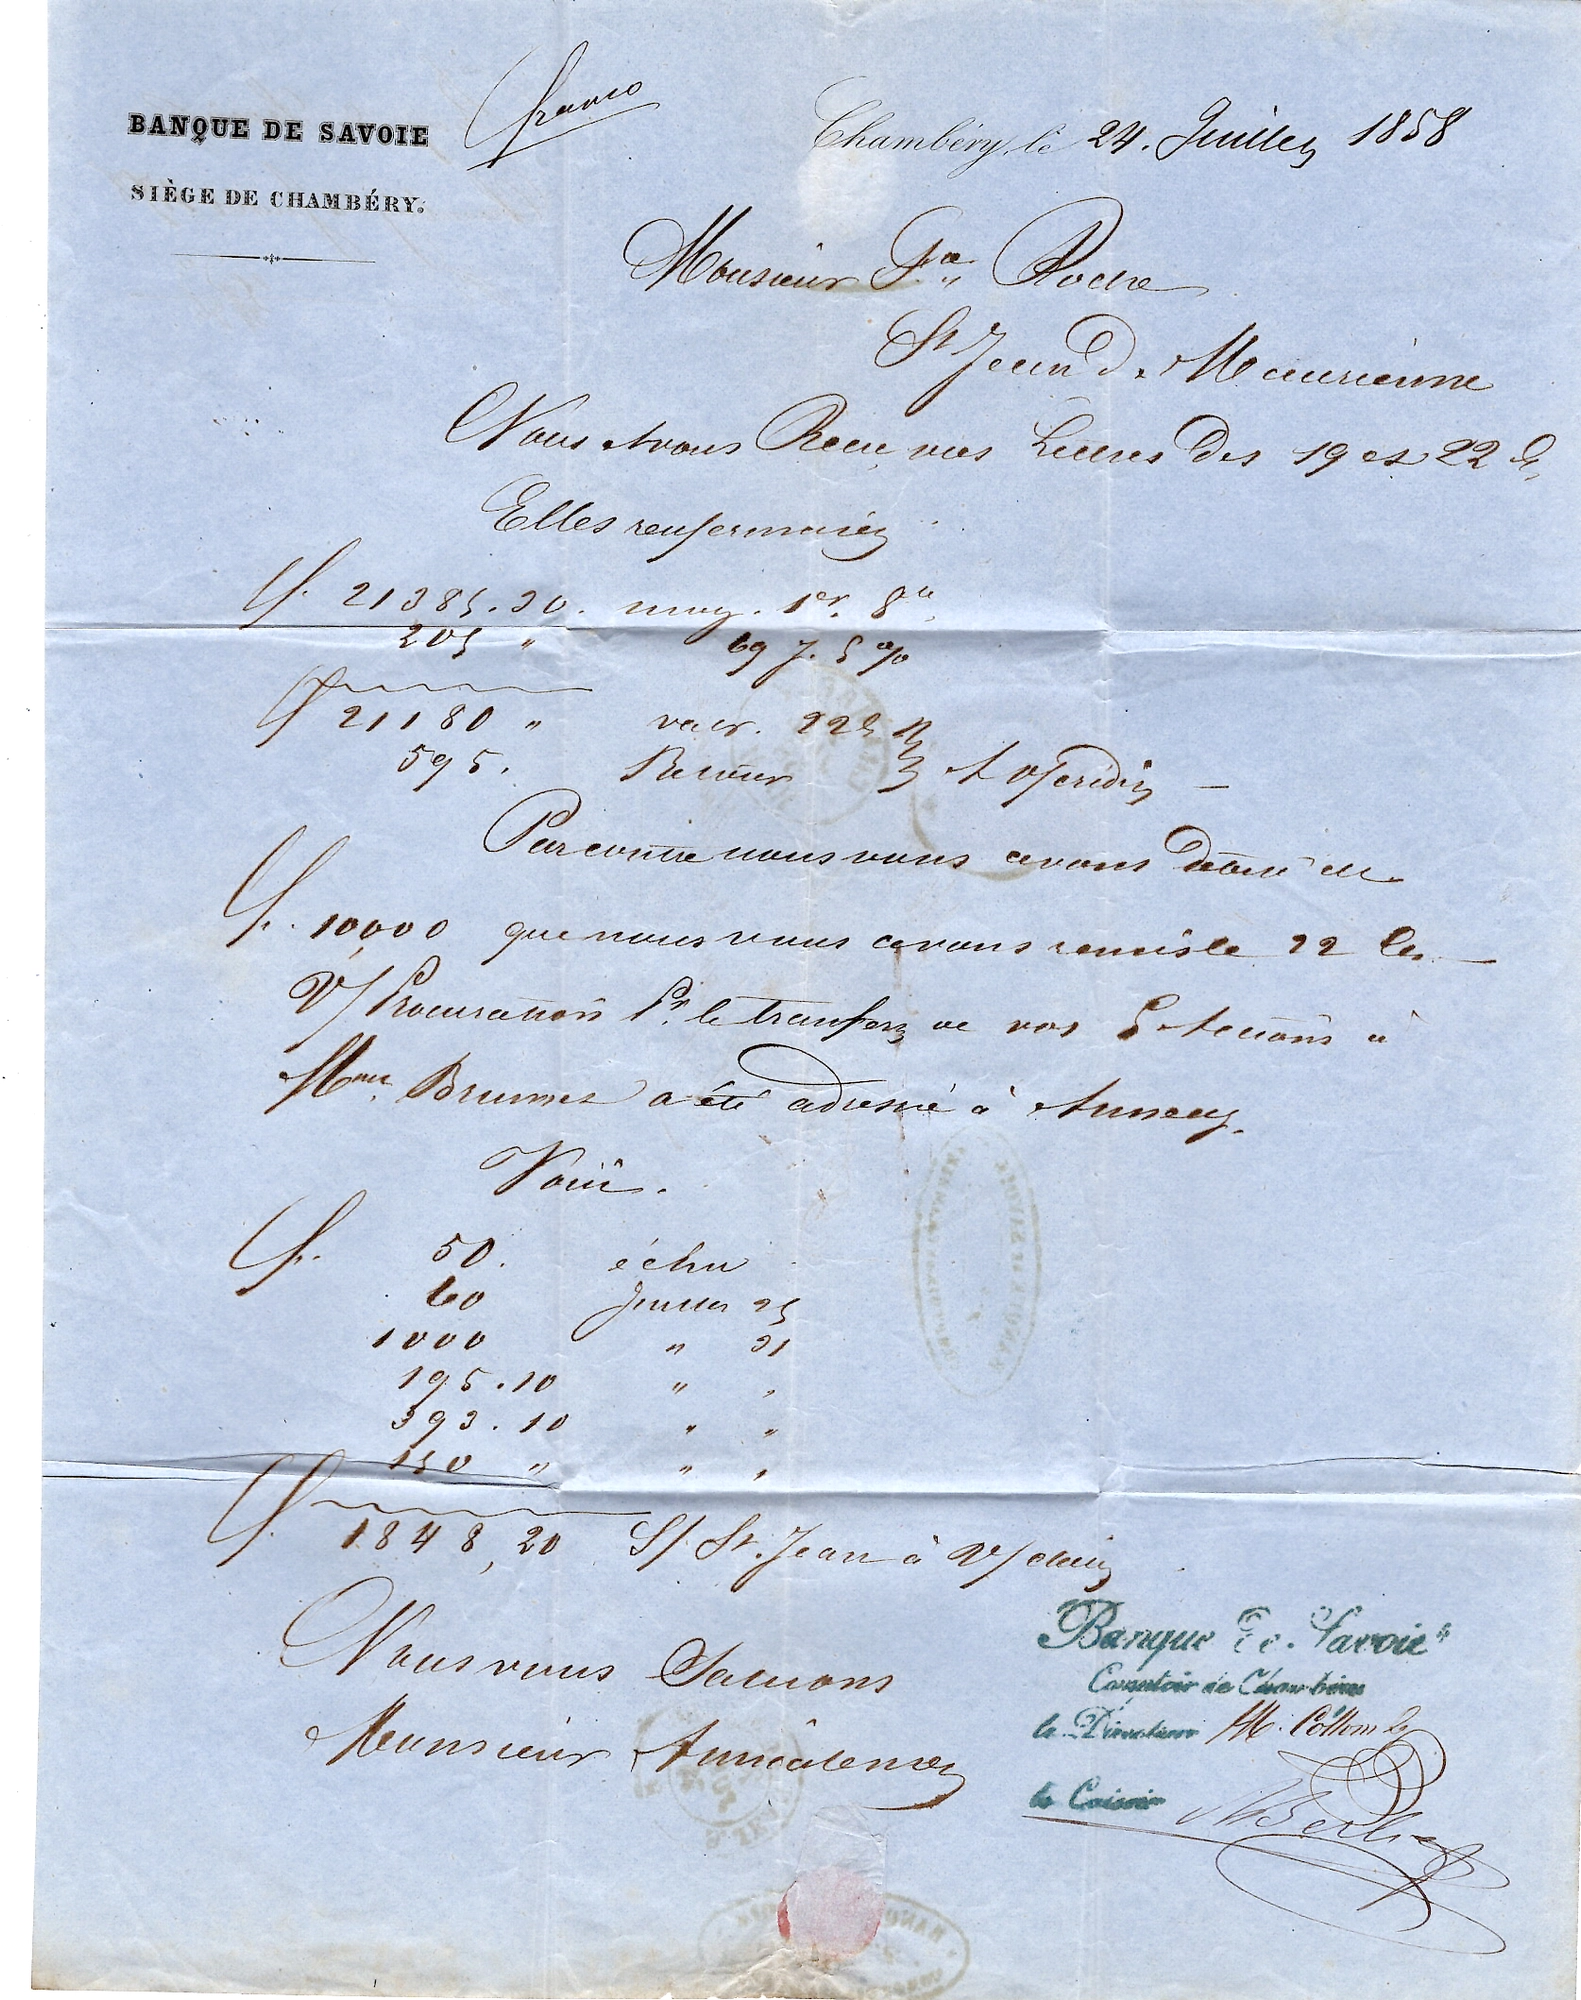 BANQUE DE SAVOIE
SIÈGE DE CHAMBÉRY.
franco
Chambéry, le 24. Juillet 1858
Monsieur Roche
St Jean de Maurienne
Nous avons Recu vos Lettres des 19 et 22 Ct
Elles renfermaient
f. 21385.30. 1er. 8re
205 " 69 j. 5 %
f 21180 " valr. 225 n/
595. Retour A V/ crédit
Par contre nous vous avons débité de
f. 10,000 que nous vous avons remis le 22 Ct
V/ Procuration Pr. le transfert de vos 5 Actions à
Mme. Brunet a été adressé à Annecy.
Voici.
f. 50. échu
60 Juillet 25
1000 " 31
195.10 " "
393.10 " "
150 " " "
f. 1848,20 S/ St. Jean à V/ débit
Nous vous Saluons
Monsieur Amicalement
Banque de Savoie
Comptoir de Chambéry
le Directeur M. Collomb
le Caissier